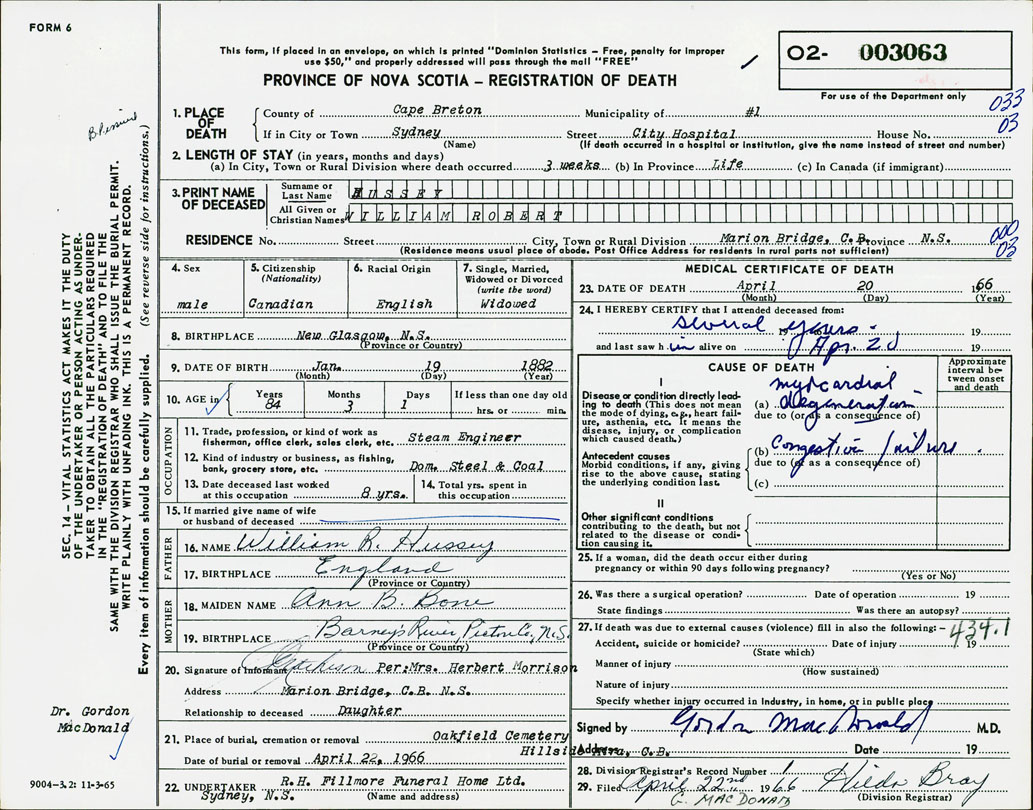 FORM 6
This form, if placed in an envelope, on which is printed "Dominion Statistics – Free, penalty for improper
use $50," and properly addressed will pass through the mail "FREE"
PROVINCE OF NOVA SCOTIA – REGISTRATION OF DEATH
O2- 003063
For use of the Department only
033
03
1. PLACE OF DEATH
County of Cape Breton Municipality of #1
If in City or Town Sydney Street City Hospital House No.
(Name) (If death occurred in a hospital or institution, give the name instead of street and number)
2. LENGTH OF STAY (in years, months and days)
(a) In City, Town or Rural Division where death occurred 3 weeks (b) In Province Life (c) In Canada (if immigrant)
3. PRINT NAME OF DECEASED
Surname or Last Name HUSSEY
All Given or Christian Names WILLIAM ROBERT
RESIDENCE No. Street City, Town or Rural Division Marion Bridge, C.B. Province N.S.
(Residence means usual place of abode. Post Office Address for residents in rural parts not sufficient)
000
03
4. Sex
male
5. Citizenship
(Nationality)
Canadian
6. Racial Origin
English
7. Single, Married,
Widowed or Divorced
(write the word)
Widowed
8. BIRTHPLACE New Glasgow, N.S.
(Province or Country)
9. DATE OF BIRTH Jan. 19 1882
(Month) (Day) (Year)
10. AGE in
Years Months Days If less than one day old
84 3 1 hrs. or min.
OCCUPATION
11. Trade, profession, or kind of work as
fisherman, office clerk, sales clerk, etc. Steam Engineer
12. Kind of industry or business, as fishing,
bank, grocery store, etc. Dom. Steel & Coal
13. Date deceased last worked
at this occupation 8 yrs.
14. Total yrs. spent in
this occupation
15. If married give name of wife
or husband of deceased
FATHER
16. NAME William R. Hussey
17. BIRTHPLACE England
(Province or Country)
MOTHER
18. MAIDEN NAME Ann B. Bone
19. BIRTHPLACE Barney's River, Pictou Co, N.S.
(Province or Country)
20. Signature of Informant Per: Mrs. Herbert Morrison
Address Marion Bridge, C.B. N.S.
Relationship to deceased Daughter
21. Place of burial, cremation or removal Oakfield Cemetery
Hillside Mira, C.B.
Date of burial or removal April 22, 1966
22. UNDERTAKER R.H. Fillmore Funeral Home Ltd.
Sydney, N.S. (Name and address)
MEDICAL CERTIFICATE OF DEATH
23. DATE OF DEATH April 20 1966
(Month) (Day) (Year)
24. I HEREBY CERTIFY that I attended deceased from:
several years. 19 19
and last saw him alive on Apr. 20 19
CAUSE OF DEATH
Approximate interval between onset and death
I
Disease or condition directly leading
to death (This does not mean
the mode of dying, e.g., heart failure,
asthenia, etc. It means the
disease, injury, or complication
which caused death.)
(a) myocardial
degeneration
due to (or as a consequence of)
Antecedent causes
Morbid conditions, if any, giving
rise to the above cause, stating
the underlying condition last.
(b) Congestive failure
due to (or as a consequence of)
(c)
II
Other significant conditions
contributing to the death, but not
related to the disease or condition
causing it.
25. If a woman, did the death occur either during
pregnancy or within 90 days following pregnancy?
(Yes or No)
26. Was there a surgical operation? Date of operation 19
State findings Was there an autopsy?
27. If death was due to external causes (violence) fill in also the following: –
434.1
Accident, suicide or homicide? Date of injury 19
(State which)
Manner of injury
(How sustained)
Nature of injury
Specify whether injury occurred in industry, in home, or in public place
Signed by Gordon MacDonald M.D.
Address Date 19
28. Division Registrar's Record Number 1
29. Filed April 22nd 1966 Hilda Bray
G. MACDONALD (Division Registrar)
SEC. 14 – VITAL STATISTICS ACT MAKES IT THE DUTY
OF THE UNDERTAKER OR PERSON ACTING AS UNDERTAKER
TO OBTAIN ALL THE PARTICULARS REQUIRED
IN THE "REGISTRATION OF DEATH" AND TO FILE THE
SAME WITH THE DIVISION REGISTRAR WHO SHALL ISSUE THE BURIAL PERMIT.
WRITE PLAINLY WITH UNFADING INK. THIS IS A PERMANENT RECORD.
Every item of information should be carefully supplied. (See reverse side for instructions.)
Dr. Gordon
MacDonald
9004-3.2: 11-3-65